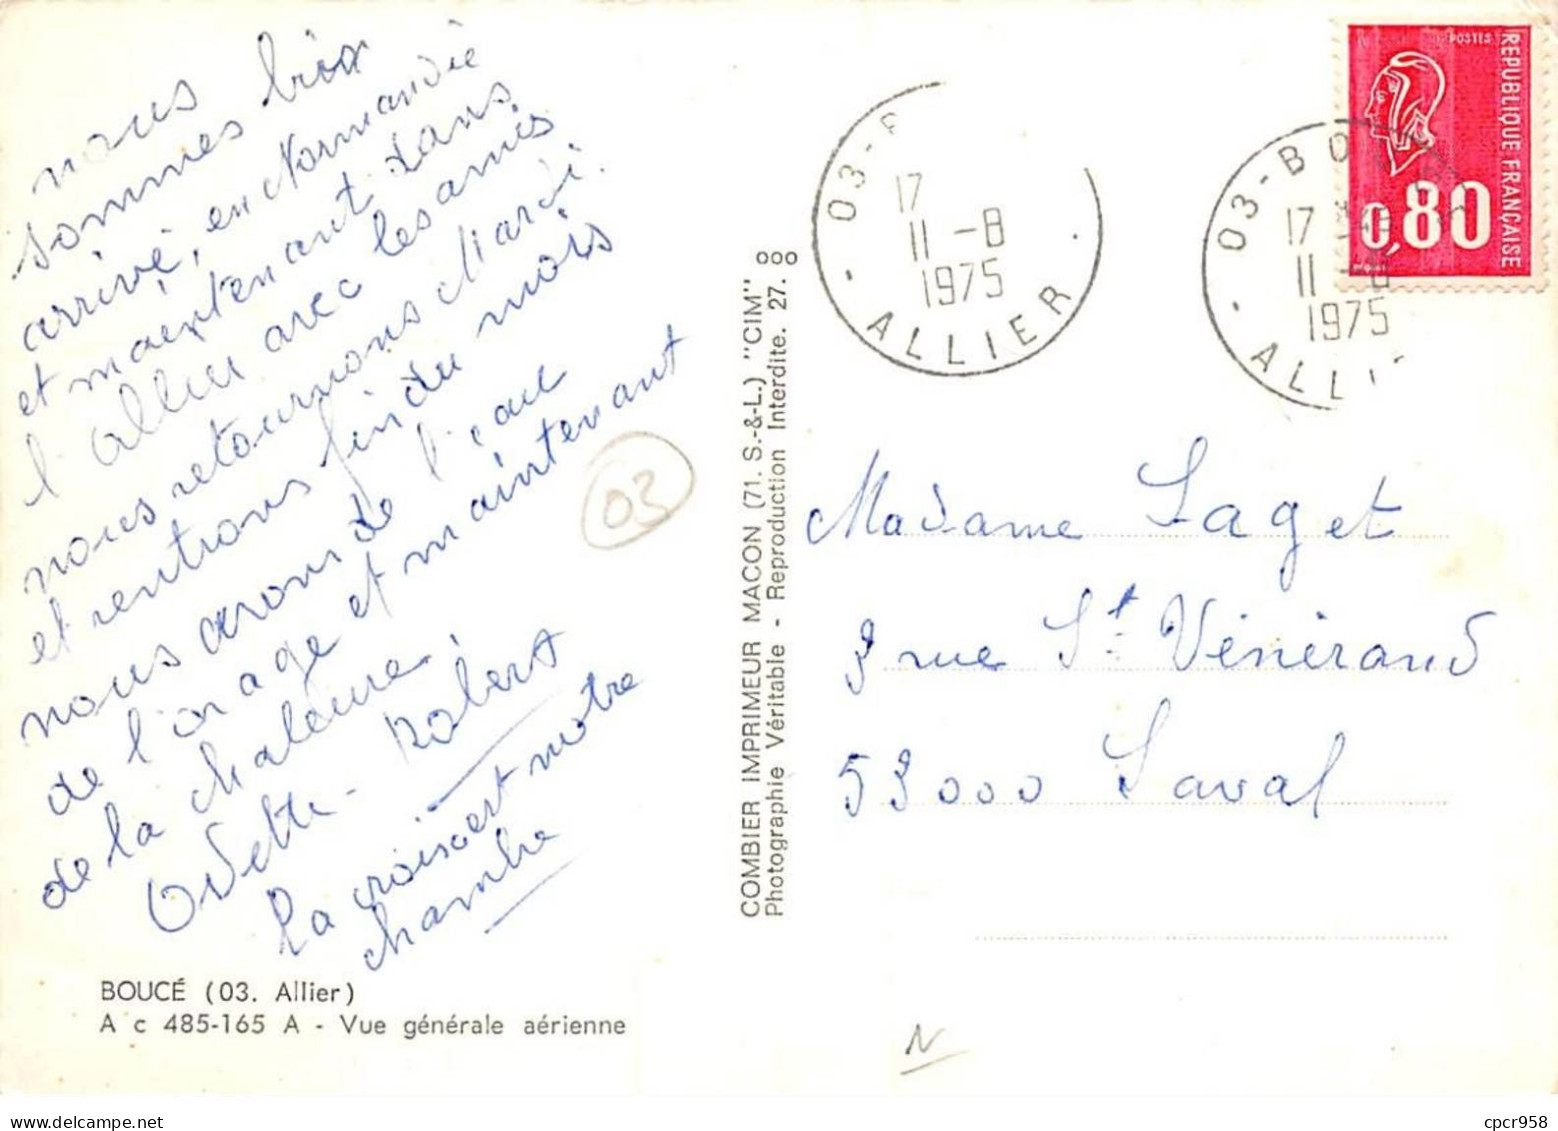 nous
sommes bien
arrivé, en Normandie
et maintenant dans
l'allier avec les amis
nous retournons Mardi.
et rentrons fin du mois
nous avons de l'eau
de l'orage et maintenant
de la chaleur.
Odette - Robert
La croix est notre
chambre
03
BOUCÉ (03. Allier)
A c 485-165 A - Vue générale aérienne
COMBIER IMPRIMEUR MACON (71. S.-&-L.) "CIM"
Photographie Véritable - Reproduction Interdite. 27. 000
03-B
17
11 -8
1975
ALLIER
03-BOUCÉ
17
11 -8
1975
ALLI
POSTES
REPUBLIQUE FRANÇAISE
0,80
Madame Laget
3 rue St Vénérand
53000 Laval
N
cpcr958